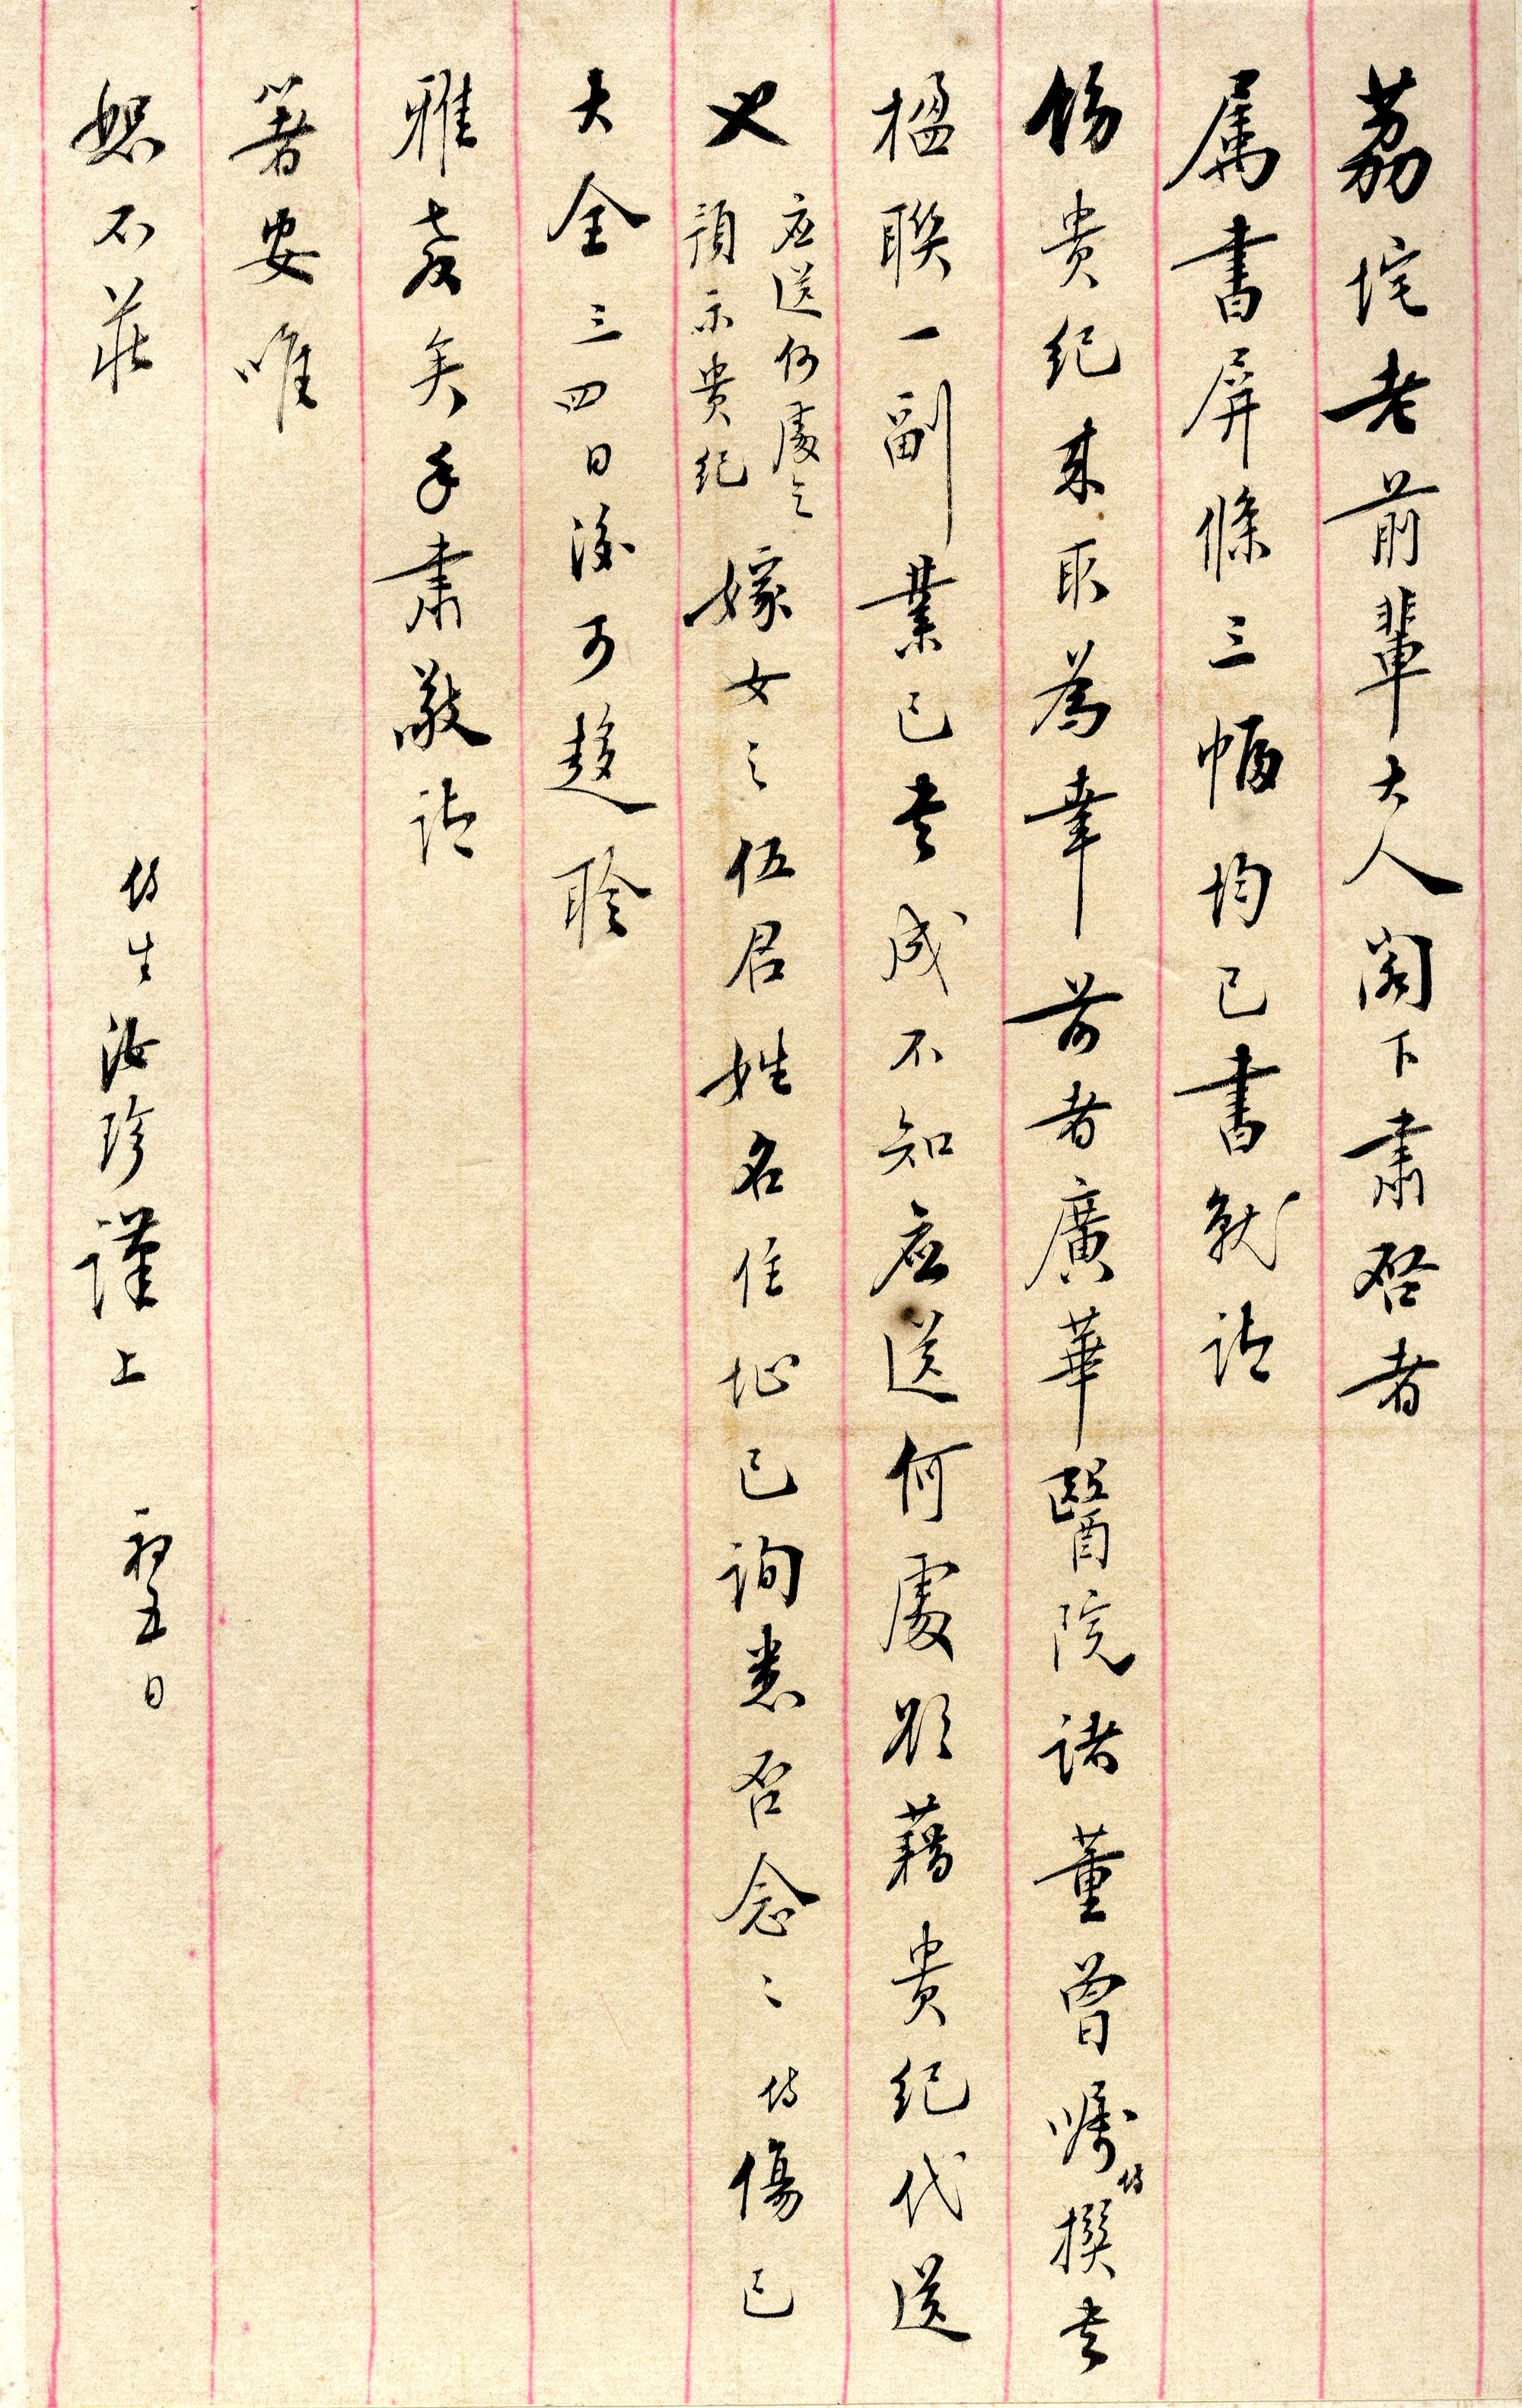 荔垞老前輩大人閣下肅啓者
屬書屏條三幅均已書就請
飭貴紀來取為幸前者廣華醫院諸董曾囑侍撰書
楹聯一副業已書成不知应送何處欲藉貴紀代送
又
应送何處乞
預示貴紀
嫁女之伍君姓名住址已詢悉否念〻侍傷已
大全三四日後可趍聆
雅教矣手肅敬請
箸安唯
恕不莊
侍生汝珍謹上 初五日